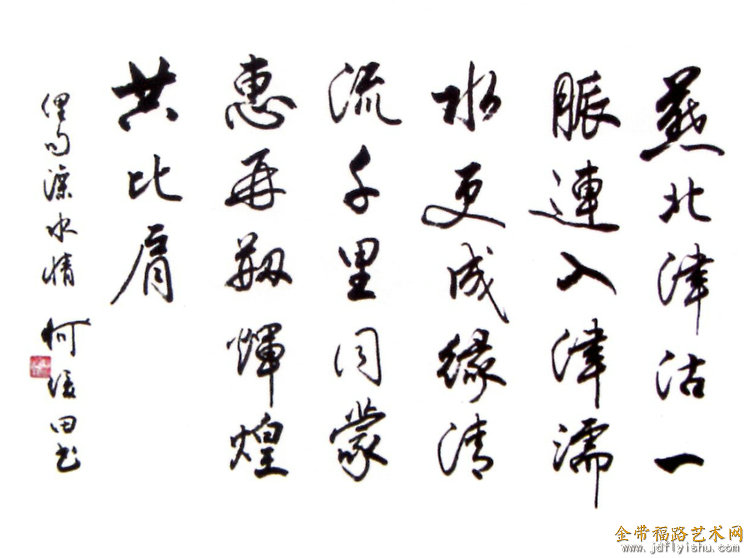 燕北津沽一
脈連入津濡
水更成緣清
流千里同蒙
惠再剏輝煌
共比肩
俚句滦水情 何田书
金带福路艺术网
www.jdflyishu.com